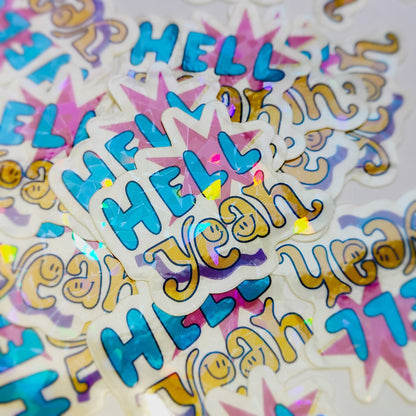 HELL
HELL
HELL
yeah
yeah
HELL
yeah
HELL
yeah